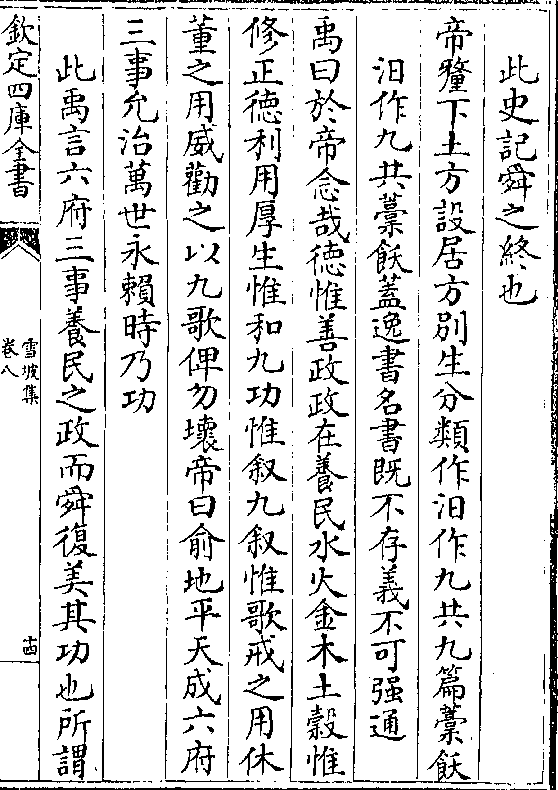 此史記舜之終也
帝釐下土方設居方别生分類作汨作九共九篇藳飫
汨作九共藁飫蓋逸書名書既不存義不可强通
禹曰於帝念哉德惟善政政在養民水火金木土榖惟
修正德利用厚生惟和九功惟叙九叙惟歌戒之用休
董之用威勸之以九歌俾勿壞帝曰俞地平天成六府
三事允治萬世永賴時乃功
此禹言六府三事養民之政而舜復美其功也所謂
欽定四庫全書
雪坡集
卷八
十四